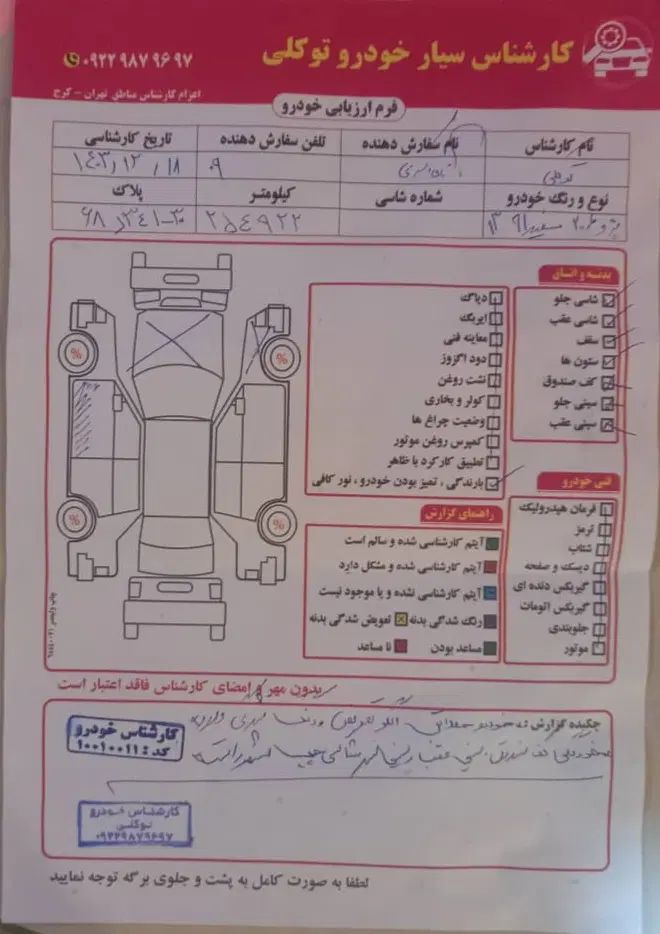 کارشناس سیار خودرو توکلی
۰۹۲۲ ۹۸۷ ۹۶ ۹۷
اعزام کارشناس مناطق تهران - کرج
فرم ارزیابی خودرو
نام کارشناس
نام سفارش دهنده
تلفن سفارش دهنده
تاریخ کارشناسی
توکلی
۰۹
۱۴۰۳/۱۲/۱۸
نوع و رنگ خودرو
شماره شاسی
کیلومتر
پلاک
پژو ۲۰۶ سفید
۲۵۴۹۲۲
بدنه و اتاق
شاسی جلو
شاسی عقب
سقف
ستون ها
کف صندوق
سینی جلو
سینی عقب
دیاگ
ایربگ
معاینه فنی
دود اگزوز
نشت روغن
کولر و بخاری
وضعیت چراغ ها
کمپرس روغن موتور
تطبیق کارکرد با ظاهر
بارندگی ، تمیز بودن خودرو ، نور کافی
%
%
%
%
فنی خودرو
فرمان هیدرولیک
ترمز
شتاب
دیسک و صفحه
گیربکس دنده ای
گیربکس اتومات
جلوبندی
موتور
راهنمای گزارش
آیتم کارشناسی شده و سالم است
آیتم کارشناسی شده و مشکل دارد
آیتم کارشناسی نشده و یا موجود نیست
رنگ شدگی بدنه
تعویض شدگی بدنه
مساعد بودن
نا مساعد
بدون مهر و امضای کارشناس فاقد اعتبار است
چکیده گزارش :
کارشناس خودرو
کد : ۱۰۰۱۰۰۱۱
کارشناس خودرو
توکلی
۰۹۲۲۹۸۷۹۶۹۷
لطفا به صورت کامل به پشت و جلوی برگه توجه نمایید